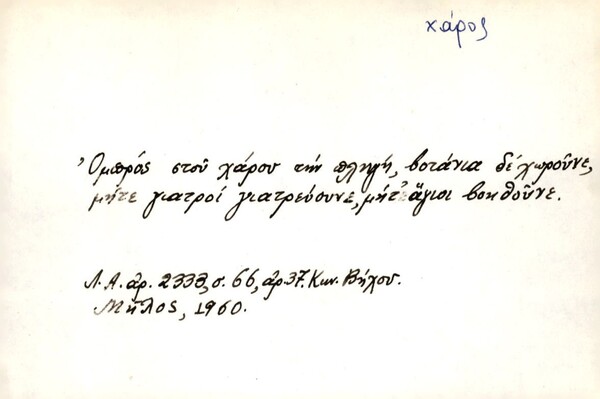 χάρος
Ὀμπρός στοῦ χάρου τήν πληγή, βοτάνια δέ χωροῦνε,
μήτε γιατροί γιατρεύουνε, μήτ' ἅγιοι βοηθοῦνε.
Λ.Α. ἀρ. 2333, σ. 66, ἀρ. 37. Κων. Βήχου.
Μῆλος, 1960.